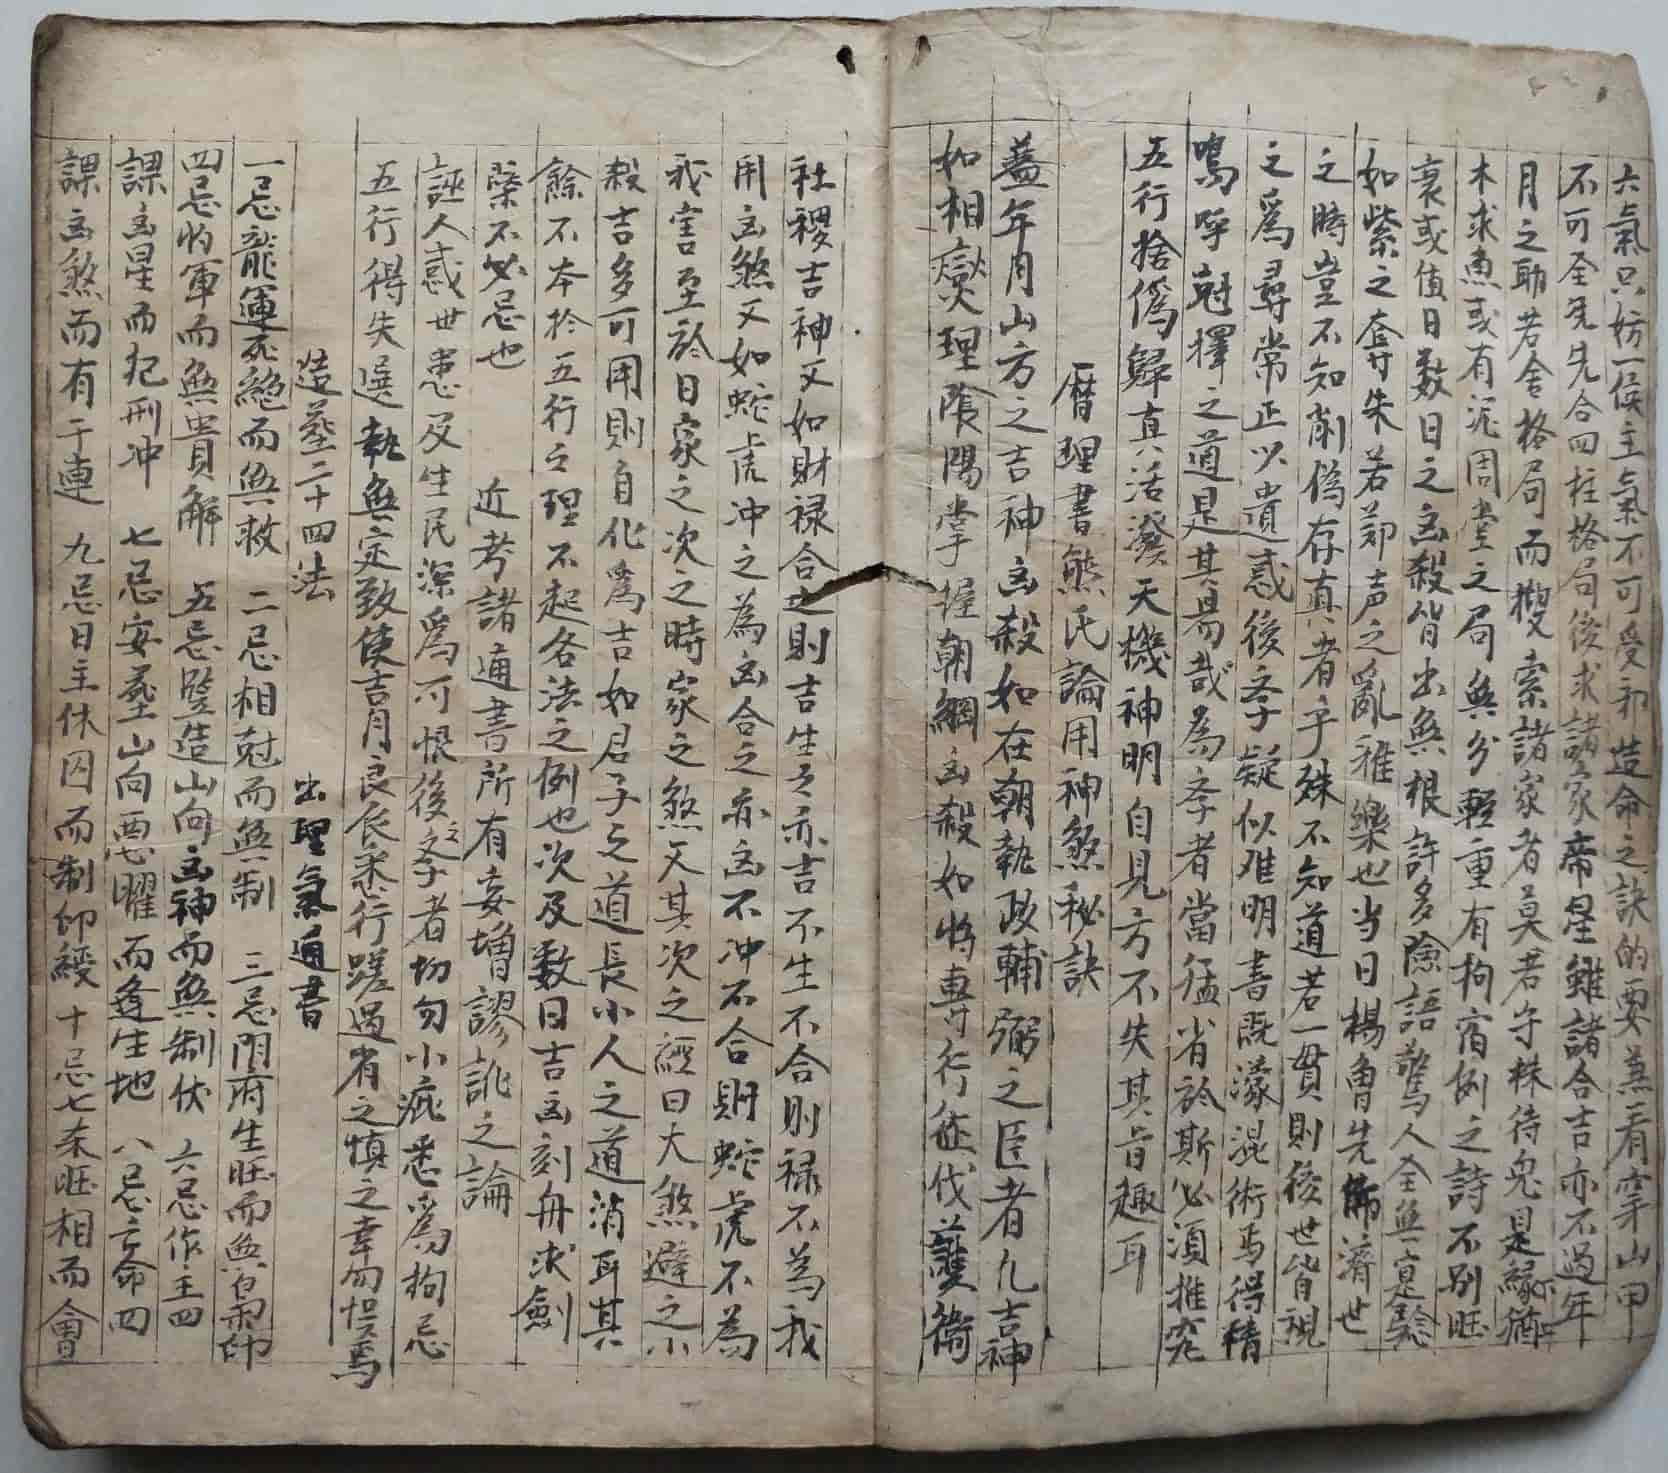 六氣只妨一侯主氣不可受邪造命之訣的要兼看穿山甲
不可全凭先合四柱格局後求諸家帝星雖諸合吉亦不過年
月之助若舍格局而搜索諸家者莫若守株待兔是緣木猶
木求魚或有泥周堂之局無分輕重有拘宿例之詩不別旺
衰或值日数日之凶殺皆出無根許多險語驚人全無寔驗
如紫之奪朱若郑声之亂雅樂也当日楊曾先師濟世
之時豈不知削偽存真者乎殊不知道若一貫則後世皆視
之爲尋常正以遺惑後孛疑似难明書既濛混術焉得精
鳴呼尅擇之道是其易哉為孛者當猛省於斯必須推究
五行捨僞歸真活潑天機神明自見方不失其旨趣耳
曆理書熊氏論用神煞秘訣
蓋年月山方之吉神凶殺如在朝執政輔弼之臣者凡吉神
如相爕理陰陽掌握朝綱凶殺如将專行征伐護衛
社稷吉神又如財禄合之則吉生之亦吉不生不合則禄不為我
用凶煞又如蛇虎冲之為凶合之亦凶不冲不合則蛇虎不為
我害至於日家之次之時家之煞又其次之經曰大煞避之小
殺吉多可用則自化爲吉如君子之道長小人之道消耳其
餘不本於五行之理不起各法之例也次及数日吉凶刻舟求劍
槩不必忌也 近考諸通書所有妄增謬訛之論
誣人惑世患及生民深爲可恨後之孛者切勿小疵悉爲拘忌
五行得失選執無定致使吉月良辰悉行蹉過省之慎之幸勿悞焉
造塟二十四法 出理氣通書
一忌龍運死絕而無救 二忌相尅而無制 三忌門府生旺而無帛印
四忌的軍而無貴解 五忌竪造山向凶神而無制伏 六忌作主四
課凶星而犯刑冲 七忌安塟山向悪曜而逢生地 八忌亡命四
課凶煞而有干連 九忌日主休囚而制仰綬 十忌七杀旺相而會